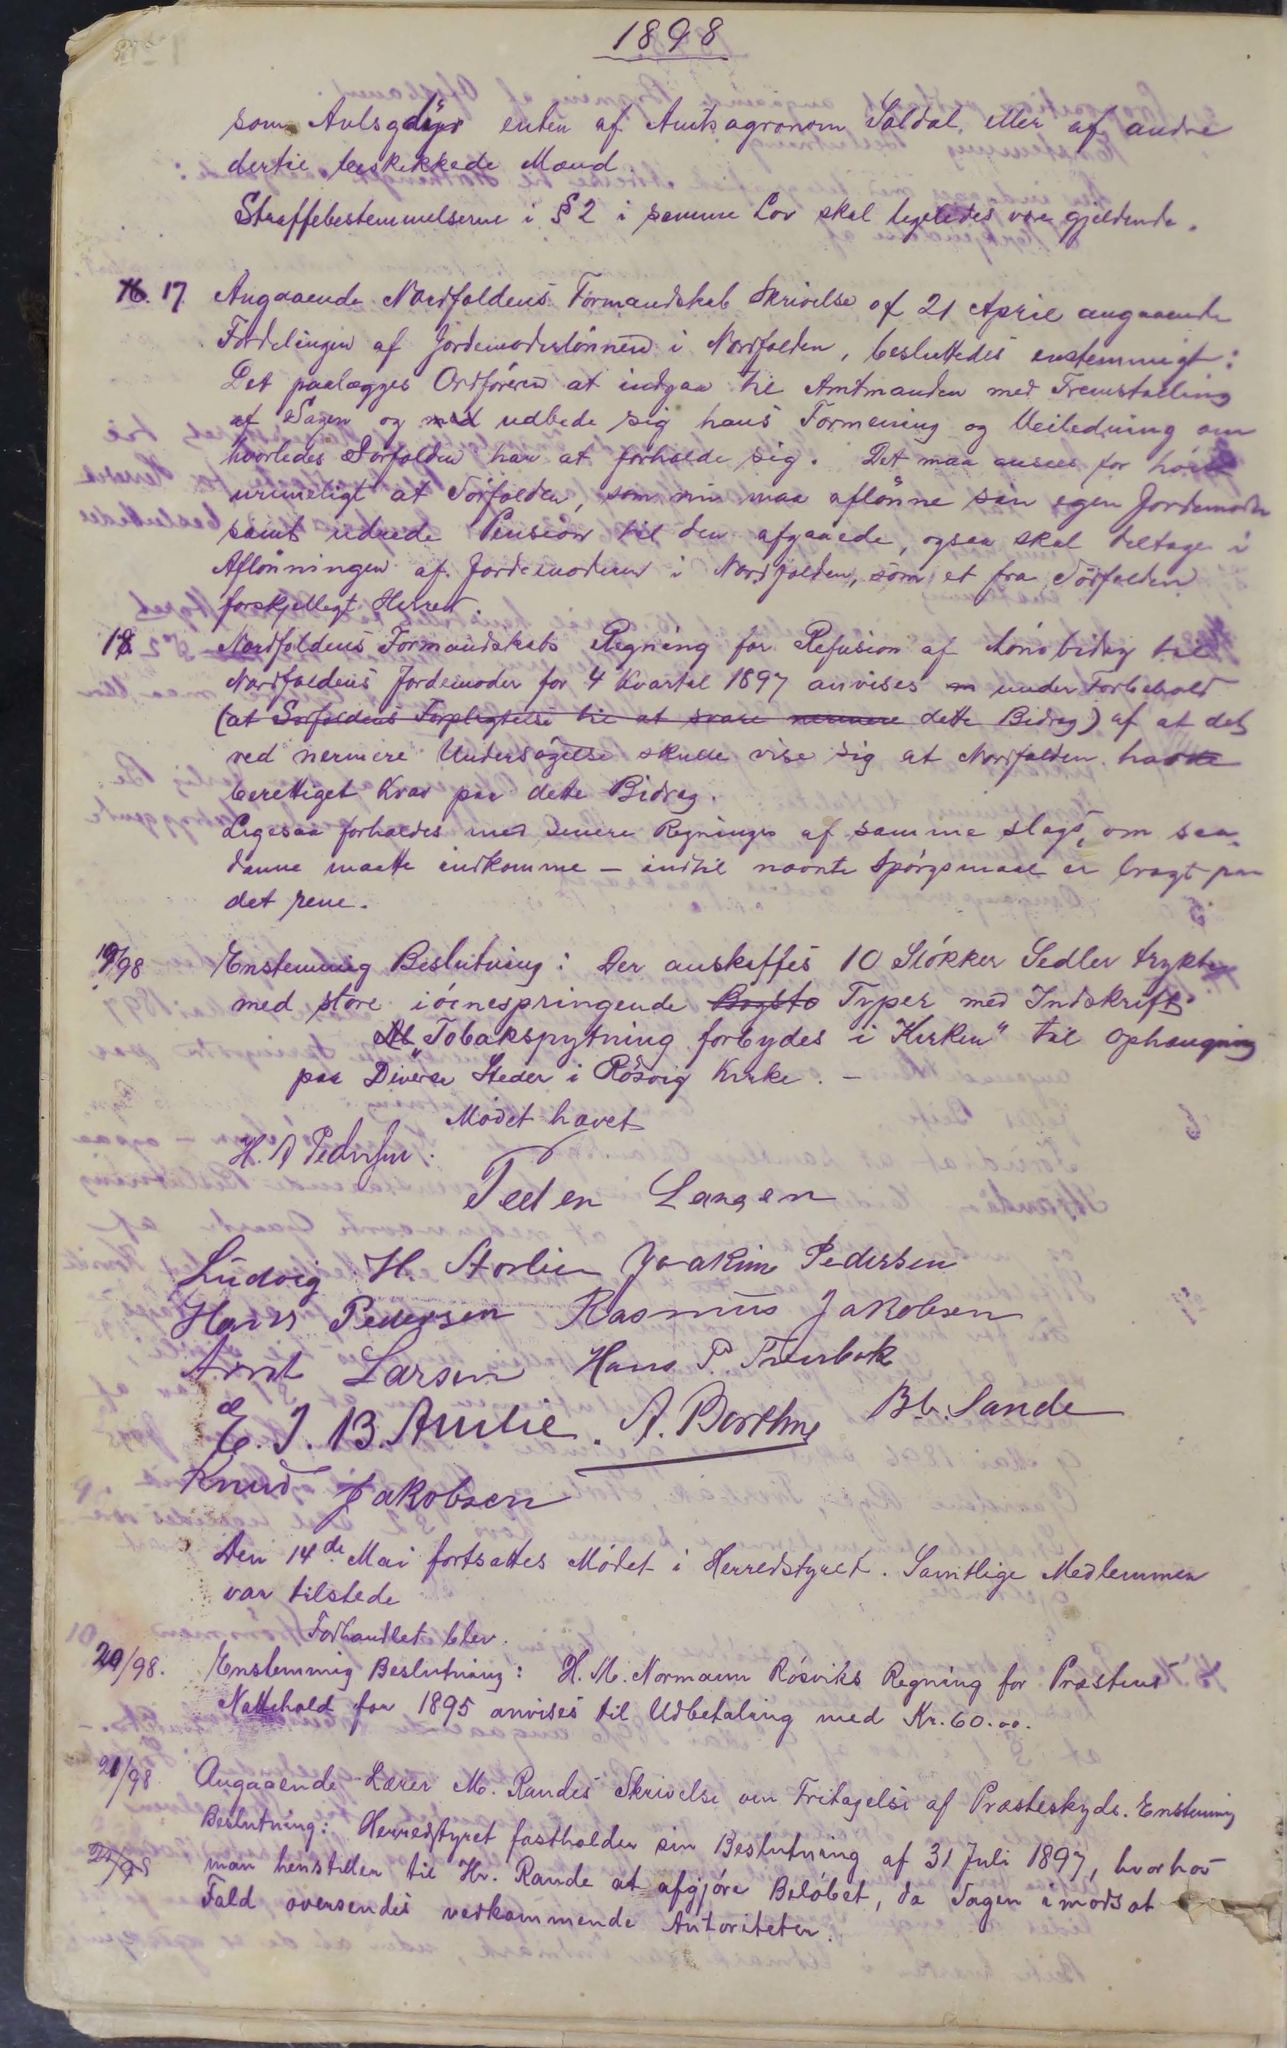 1898
som Avlsgdyr enten af Amtsagronom Soldal, eller af andre
dertil beskikkede Mænd
Straffebestemmelserne i § 2 i samme Lov skal ligeledes være gjeldende.
16. 17. Angaaende Nordfoldens Formandskab Skrivelse af 21 April angaaende
Fordelingen af Jordemoderlønnen i Nordfolden, besluttedes enstemmigt:
Det paalægges Ordføreren at indgaa til Amtmanden med Fremstilling
af Sagen og med udbede sig hans Formening og Veiledning om
hvorledes Sørfolden har at forholde sig. Det maa ansees for høist
urimeligt at Sørfolden, som nu maa aflønne sin egen Jordemoder
samt udrede Pension til den afgaaede, ogsaa skal deltage i
Aflønningen af Jordemoderen i Nordfolden, som et fra Sørfolden
forskjelligt Herred.
18 Nordfoldens Formandskabs Regning for Refusion af Lønsbidrag til
Nordfoldens Jordemoder for 4 Kvartal 1897 anvises under Forbehold
(at Sørfoldens Forpligtelse til at svare nermere dette Bidrag) af at det
ved nermere Undersøgelse skulle vise sig at Nordfolden havde
berettiget Krav paa dette Bidrag.
Ligesaa forholdes med senere Regninger af samme slags, om saa-
danne maatte indkomme – indtil nævnte Spørgsmaal er bragt paa
det rene.
19/98 Enstemmig Beslutning: Der anskaffes 10 Stökker Sedler trykte
med store iøienespringende Typer med Indskrift
"Tobakspytning forbydes i Kirken" til Ophængning
paa Diverse Steder i Røsvig Kirke. –
Mødet hævet
H. A Pedersen.
Peder Larsen
Ludvig H. Storlien Joakim Pedersen
Hans Pedersen Rasmus Jakobsen
Arnt Larsen Hans P. Tverbak
E. J. B. Amlie. A. Borthne B. Sande
Knud Jakobsen
Den 14de Mai fortsattes Mødet i Herredstyret. Samtlige Medlemmer
var tilstede
Forhandlet blev.
20/98. Enstemmig Beslutning: H. M. Normann Røsviks Regning for Præstens
Nattehold for 1895 anvises til Udbetaling med Kr. 60.00.
21/98 Angaaende Lærer M. Randes Skrivelse om Fritagelse af Præsteskyds. Enstemmig
Beslutning: Herredstyret fastholder sin Beslutning af 31 Juli 1897, hvorhos
22/98 man henstiller til Hr. Rande at afgjøre Beløbet, da Sagen i modsat
Fald oversendes vedkommende Autoriteter.